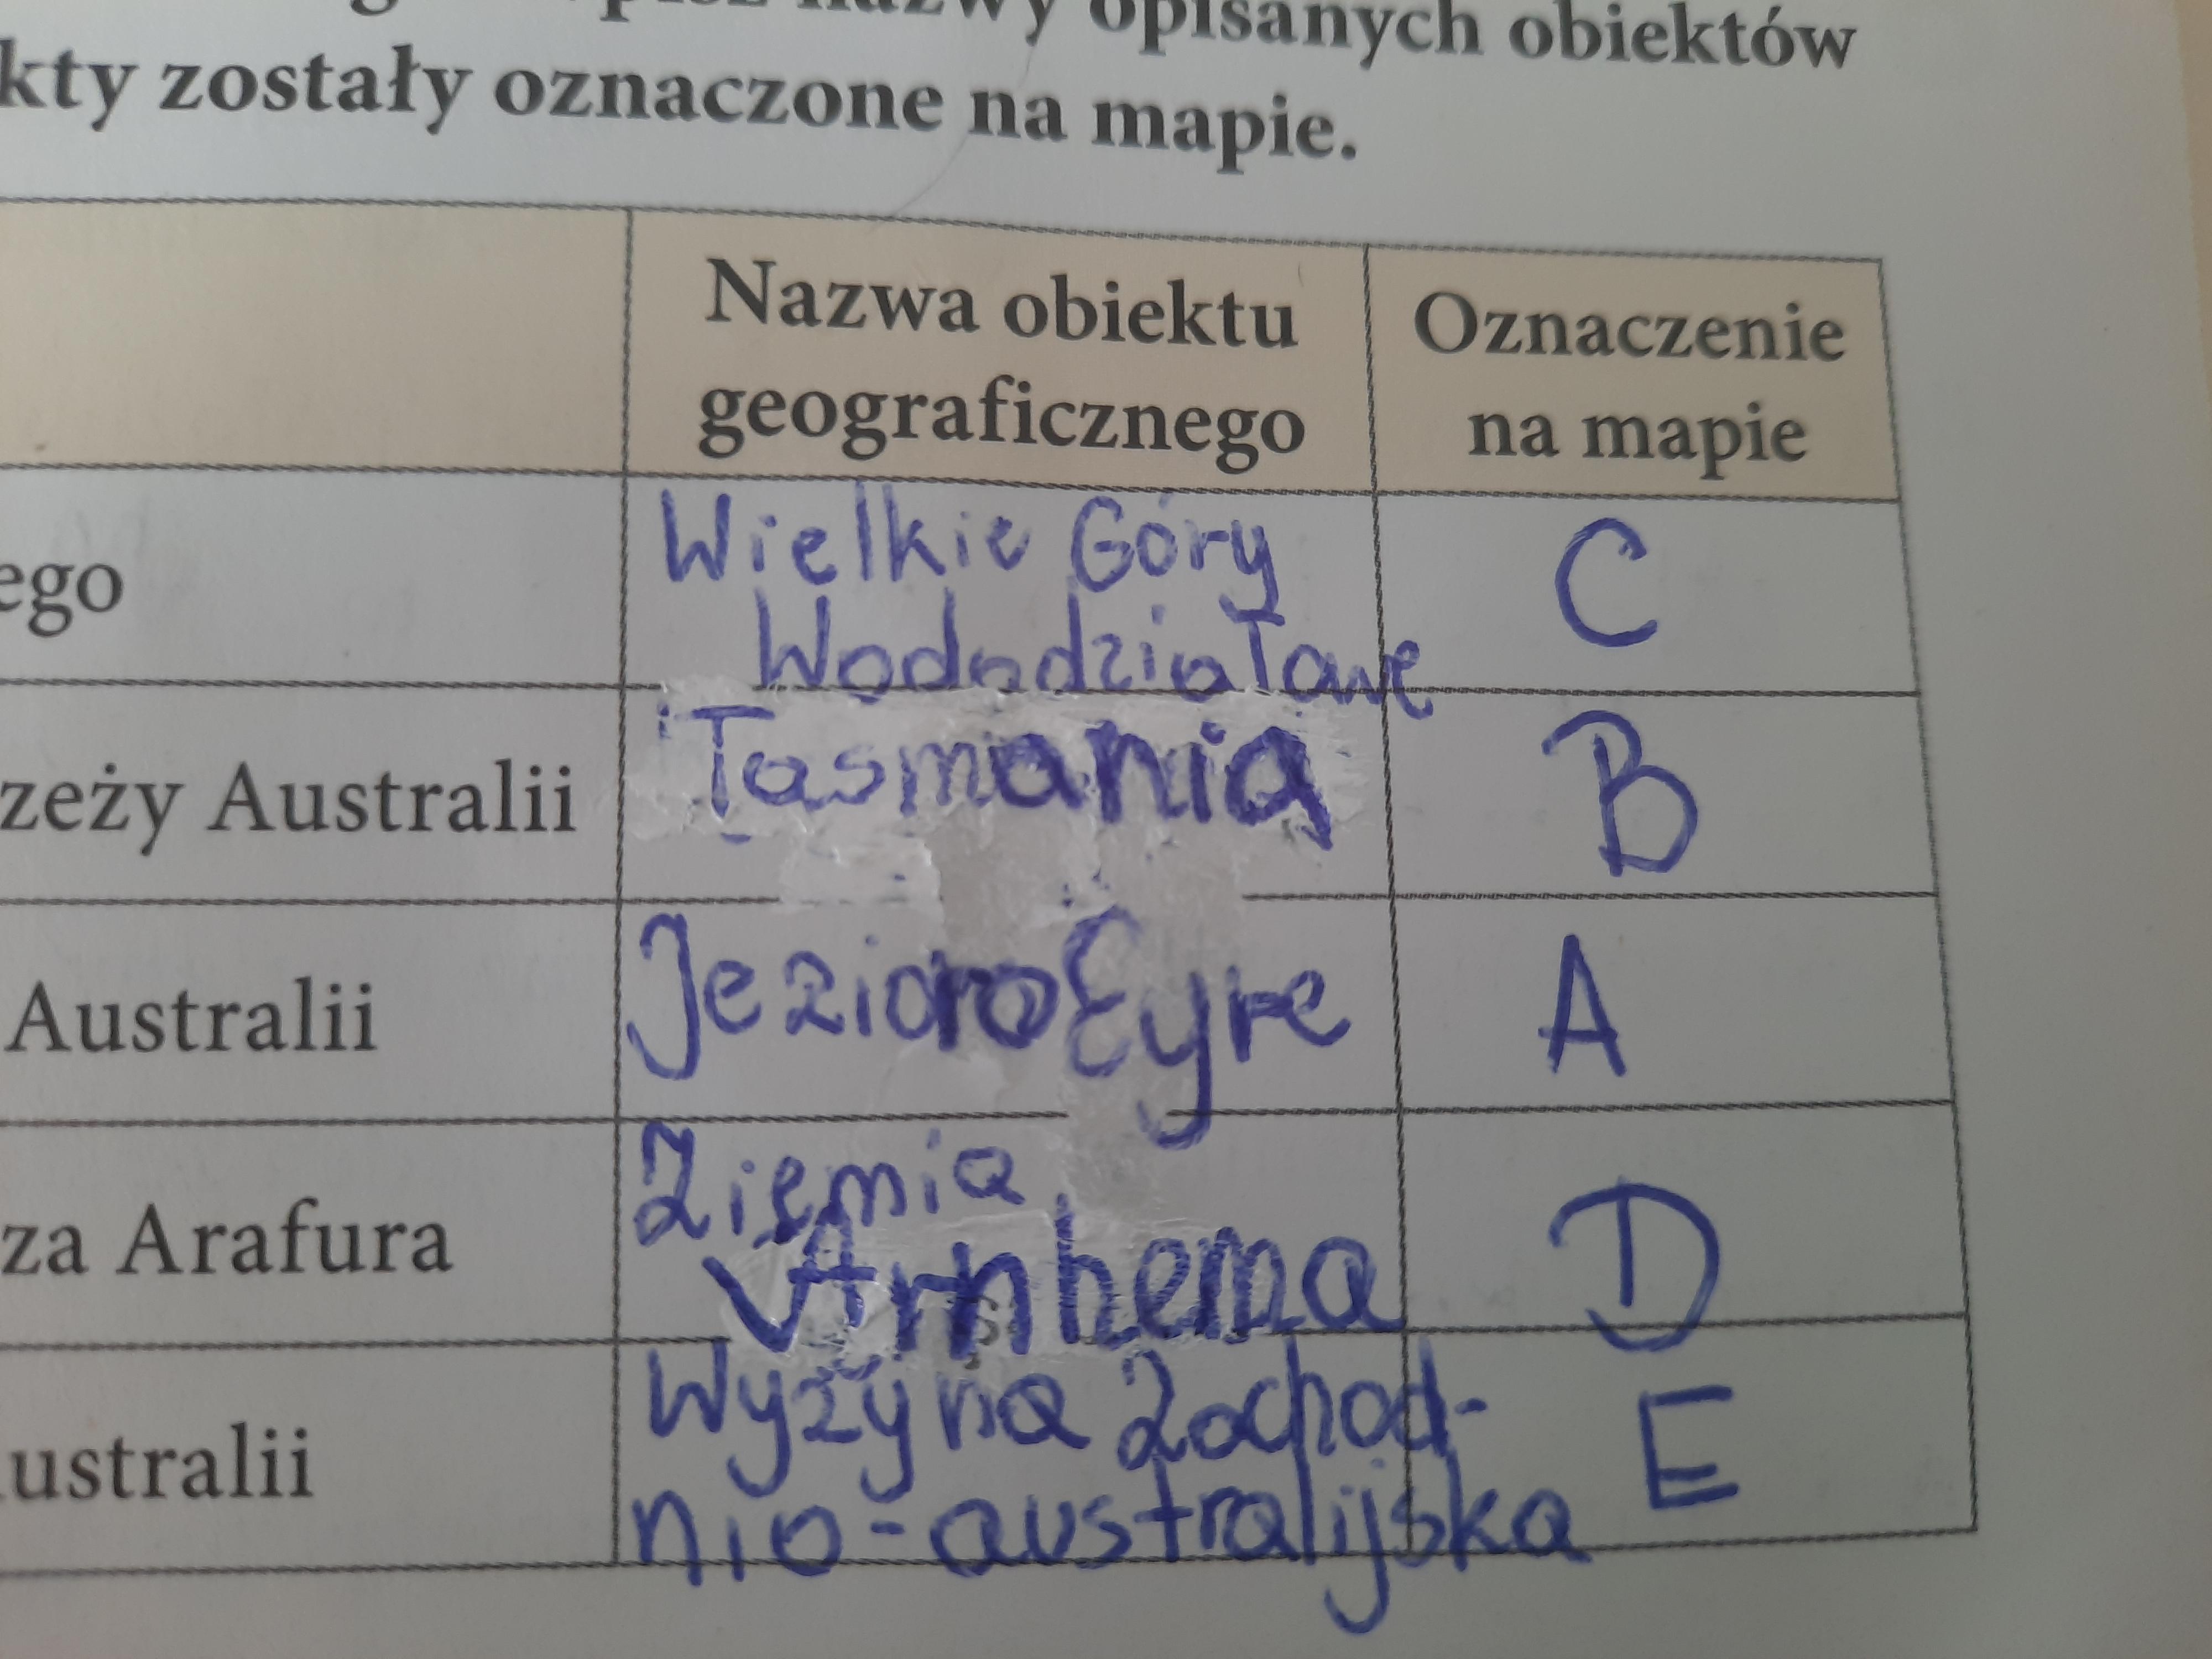 nazwy opisanych obiektów
kty zostały oznaczone na mapie.
Nazwa obiektu
geograficznego
Oznaczenie
na mapie
ego
Wielkie Góry
Wododziałowe
C
zeży Australii
Tasmania
B
Australii
Jezioro Eyre
A
za Arafura
Ziemia
Arnhema
D
ustralii
Wyżyna Zachod-
nio-australijska
E